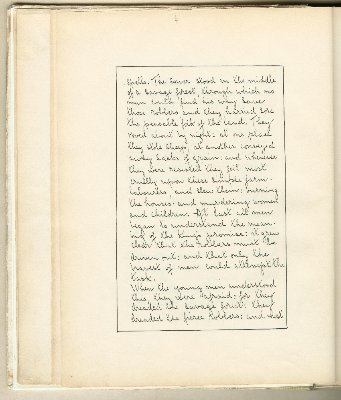 spells. The tower stood in the middle
of a savage forest, through which no
man could find his way save
those robbers and they harried sore
the peaceable folk of the land. They
rode about by night: at one place
they stole sheep, at another conveyed
away sacks of grain: and whenever
they were resisted they fell most
cruelly upon these humble farm-
labourers, and slew them: burning
the houses: and murdering women
and children. At last all men
began to understand the mean-
ing of the King's promise: it grew
clear that the robbers must be
driven out: and that only the
bravest of men could attempt the
task.
When the young men understood
this, they were afraid: for they
dreaded the savage forest: they
dreaded the fierce robbers: and